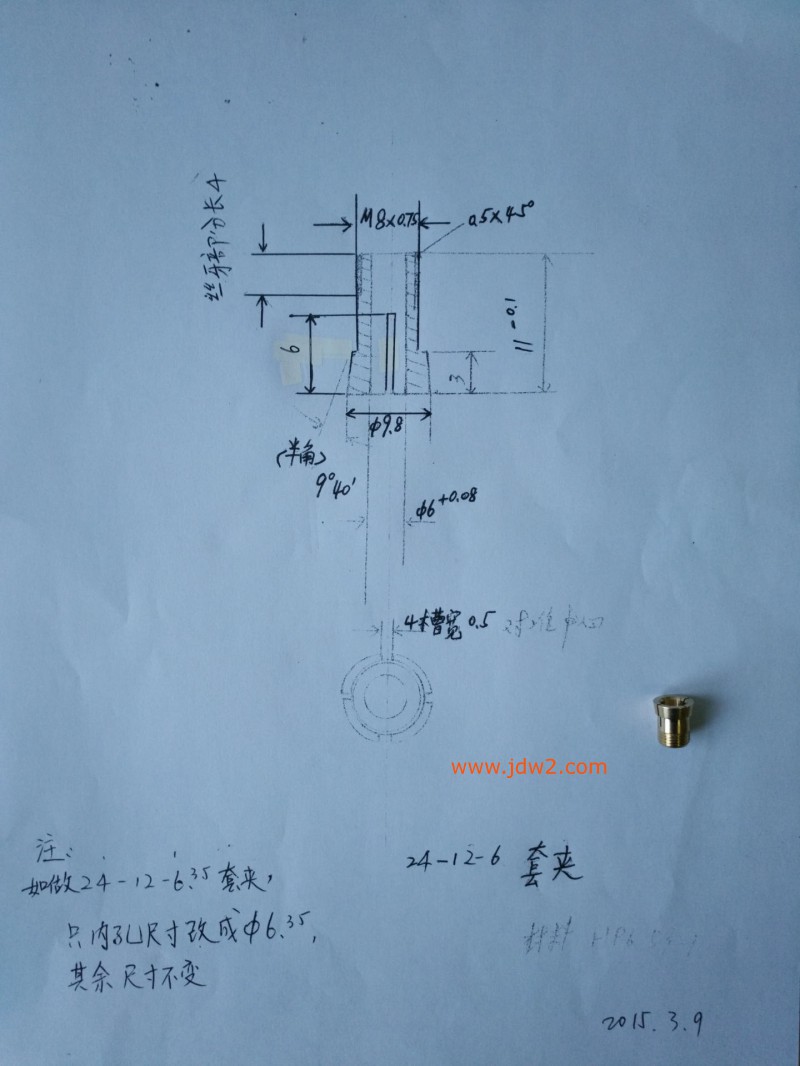 丝牙部分长4
M8×0.75
0.5×45°
6
3
11 -0.1
φ9.8
(半角)
9°40′
φ6+0.08
4槽宽0.5
www.jdw2.com
24-12-6 套夹
注:
如做24-12-6.35套夹,
只内孔尺寸改成φ6.35,
其余尺寸不变
材料
2015.3.9